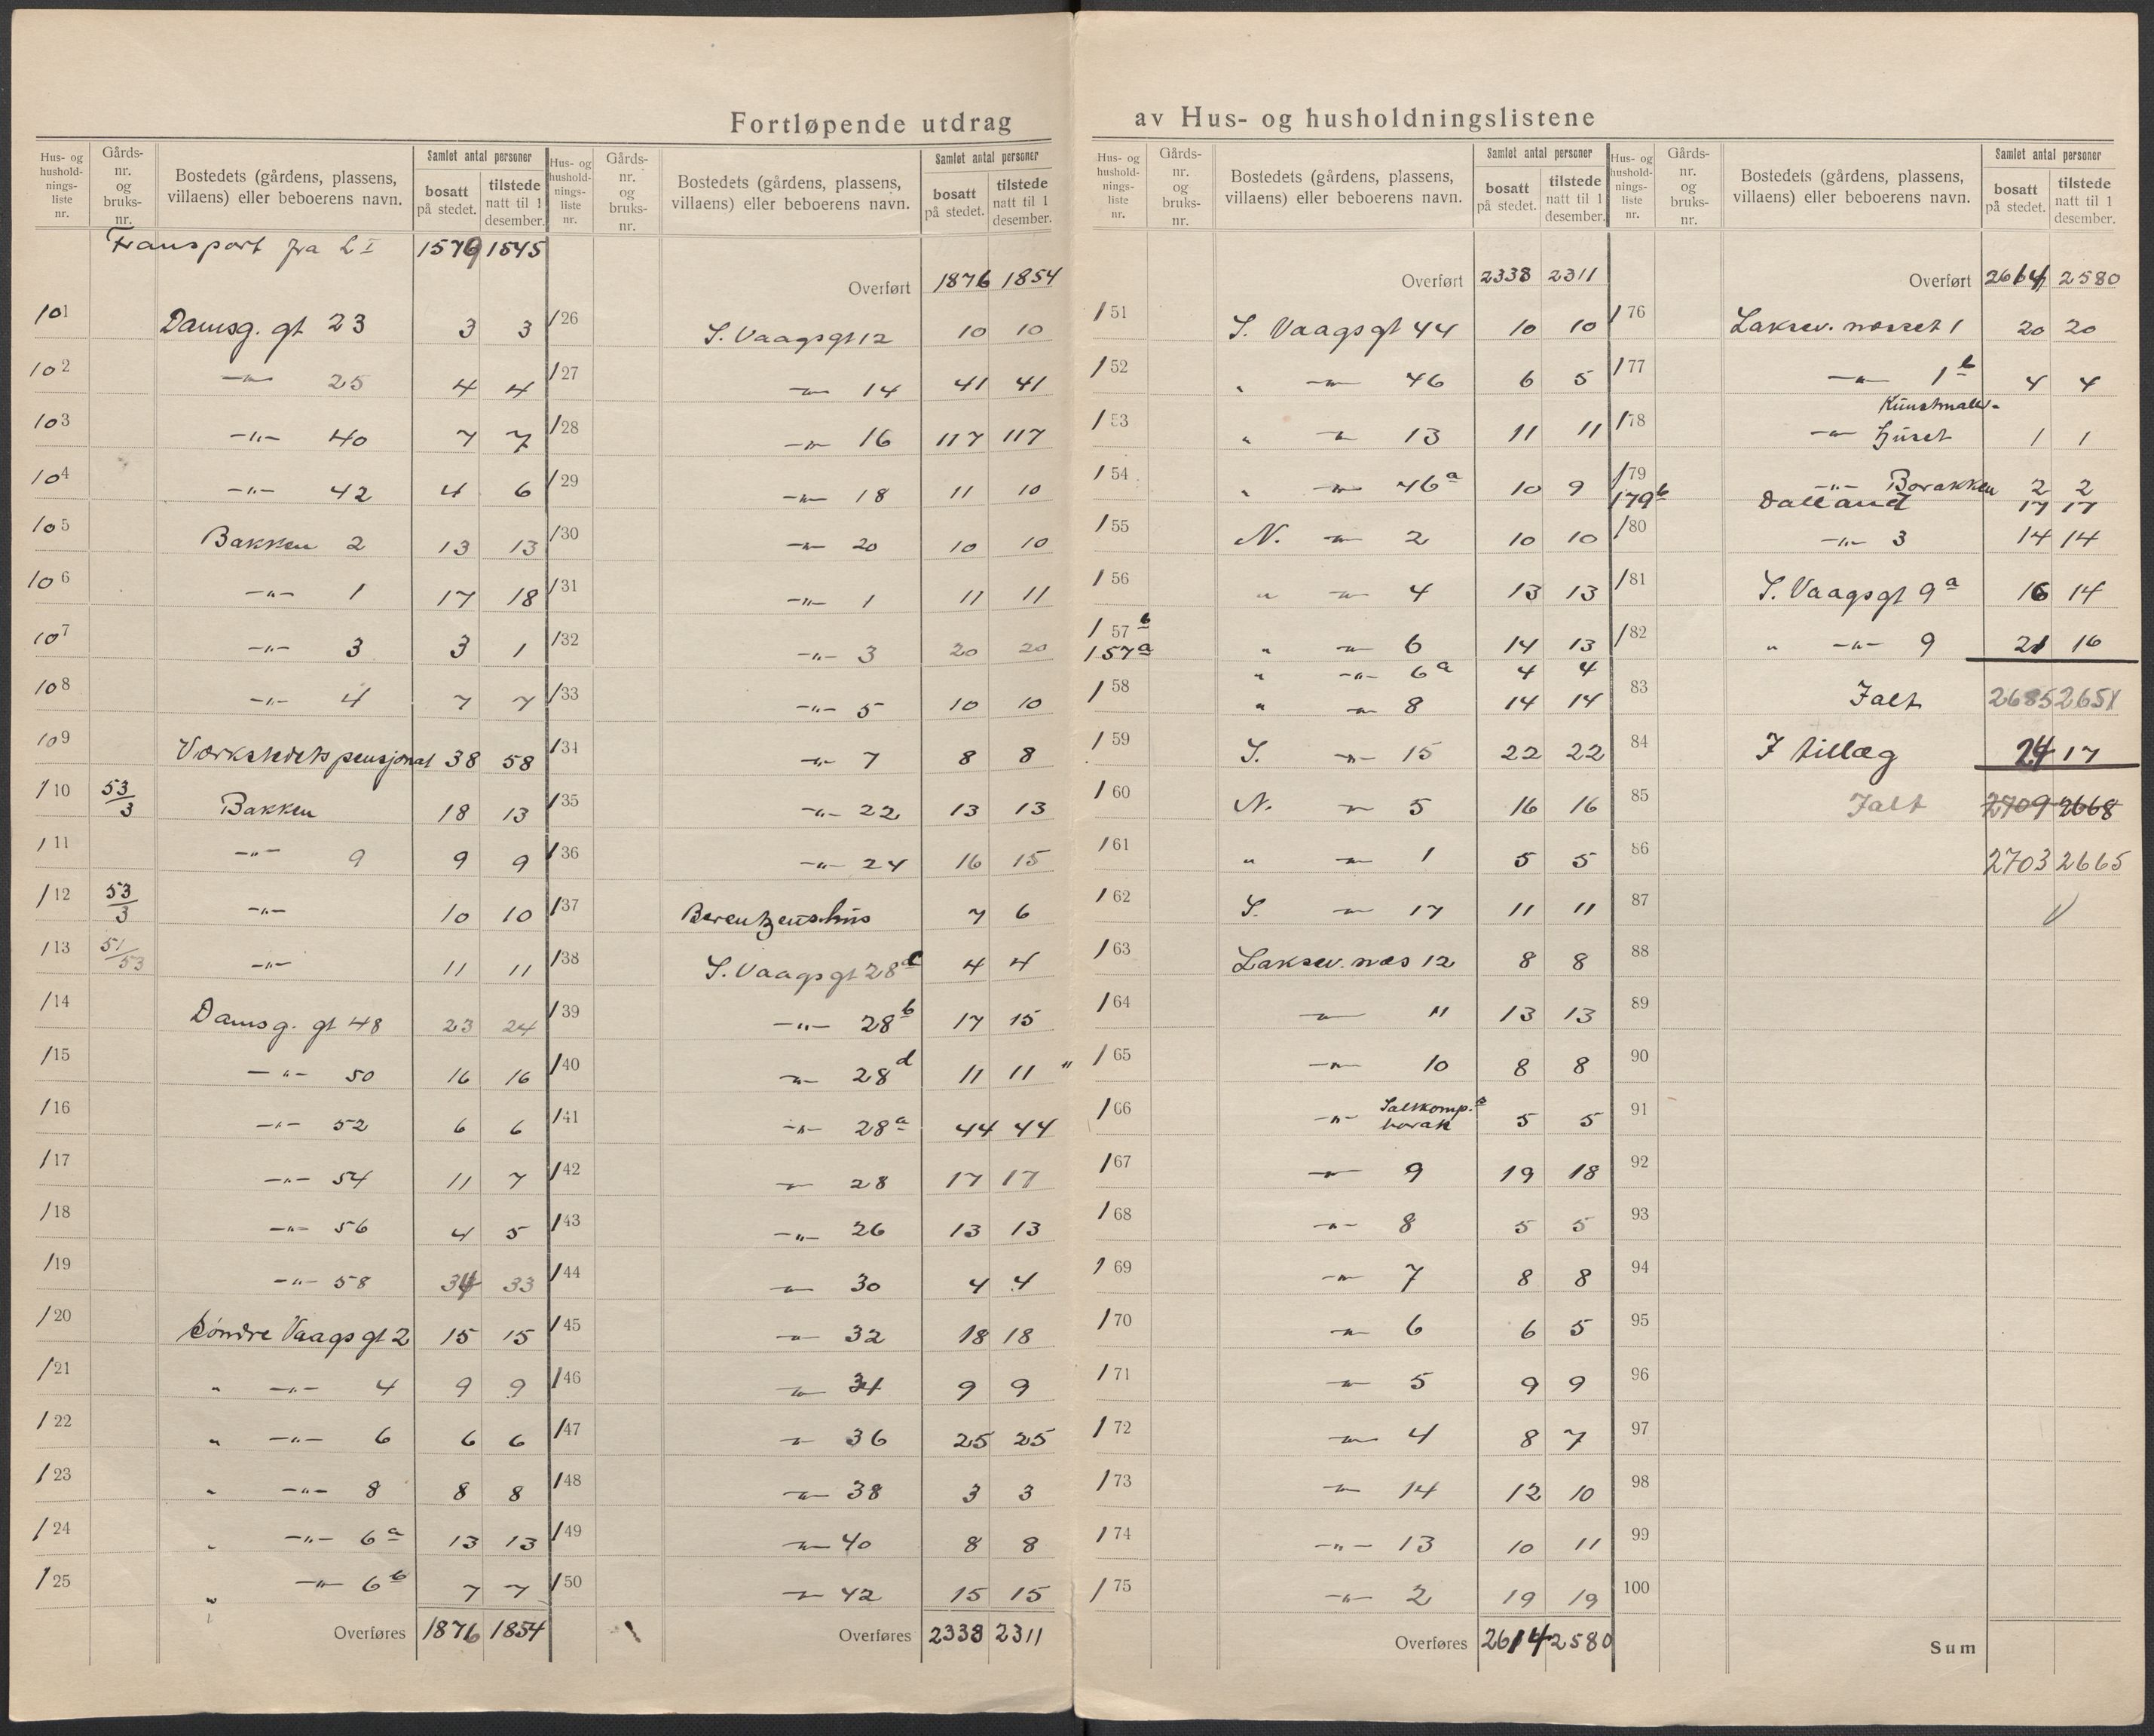 Fortløpende utdrag av Hus- og husholdningslistene
Hus- og husholdningsliste nr. Gårds-nr. og bruks-nr. Bostedets (gårdens, plassens, villaens) eller beboerens navn. Samlet antal personer bosatt på stedet. tilstede natt til 1 desember.
Transport fra L I 1579 1545
101 Damsg. gt 23 3 3
102 -"- 25 4 4
103 -"- 40 7 7
104 -"- 42 4 6
105 Bakken 2 13 13
106 -"- 1 17 18
107 -"- 3 3 1
108 -"- 4 7 7
109 Værkstedets pensjonat 38 58
110 53/3 Bakken 18 13
111 -"- 9 9 9
112 53/3 -"- 10 10
113 51/53 -"- 11 11
114 Damsg. gt 48 23 24
115 -"- 50 16 16
116 -"- 52 6 6
117 -"- 54 11 7
118 -"- 56 4 5
119 -"- 58 34 33
120 Søndre Vaagsgt 2 15 15
121 " -"- 4 9 9
122 " -"- 6 6 6
123 " -"- 8 8 8
124 " -"- 6a 13 13
125 " -"- 6b 7 7
Overføres 1876 1854
Hus- og husholdningsliste nr. Gårds-nr. og bruks-nr. Bostedets (gårdens, plassens, villaens) eller beboerens navn. Samlet antal personer bosatt på stedet. tilstede natt til 1 desember.
Overført 1876 1854
126 S. Vaagsgt 12 10 10
127 -"- 14 41 41
128 -"- 16 117 117
129 -"- 18 11 10
130 -"- 20 10 10
131 -"- 1 11 11
132 -"- 3 20 20
133 -"- 5 10 10
134 -"- 7 8 8
135 -"- 22 13 13
136 -"- 24 16 15
137 Berentzens hus 7 6
138 S. Vaagsgt 28c 4 4
139 -"- 28b 17 15
140 -"- 28d 11 11 "
141 -"- 28a 44 44
142 -"- 28 17 17
143 -"- 26 13 13
144 -"- 30 4 4
145 -"- 32 18 18
146 -"- 34 9 9
147 -"- 36 25 25
148 -"- 38 3 3
149 -"- 40 8 8
150 -"- 42 15 15
Overføres 2338 2311
Hus- og husholdningsliste nr. Gårds-nr. og bruks-nr. Bostedets (gårdens, plassens, villaens) eller beboerens navn. Samlet antal personer bosatt på stedet. tilstede natt til 1 desember.
Overført 2338 2311
151 S. Vaagsgt 44 10 10
152 " -"- 46 6 5
153 " -"- 13 11 11
154 " -"- 46a 10 9
155 N. -"- 2 10 10
156 " -"- 4 13 13
157b " -"- 6 14 13
157a " -"- 6a 4 4
158 " -"- 8 14 14
159 S. -"- 15 22 22
160 N. -"- 5 16 16
161 " -"- 1 5 5
162 S. -"- 17 11 11
163 Laksev. næs 12 8 8
164 -"- 11 13 13
165 -"- 10 8 8
166 -"- Saltkomp.s barak 5 5
167 -"- 9 19 18
168 -"- 8 5 5
169 -"- 7 8 8
170 -"- 6 6 5
171 -"- 5 9 9
172 -"- 4 8 7
173 -"- 14 12 10
174 -"- 13 10 11
175 -"- 2 19 19
Overføres 2614 2580
Hus- og husholdningsliste nr. Gårds-nr. og bruks-nr. Bostedets (gårdens, plassens, villaens) eller beboerens navn. Samlet antal personer bosatt på stedet. tilstede natt til 1 desember.
Overført 2614 2580
176 Laksev. næsset 1 20 20
177 -"- 1b 4 4
Kunstmaler-
178 -"- huset 1 1
179 -"- Barakken 2 2
179b Dalland 17 17
180 -"- 3 14 14
181 S. Vaagsgt 9a 16 14
182 " -"- 9 21 16
83 Ialt 2685 2651
84 I tillæg 24 17
85 Ialt 2709 2668
86 2703 2665
87
88
89
90
91
92
93
94
95
96
97
98
99
100
Sum